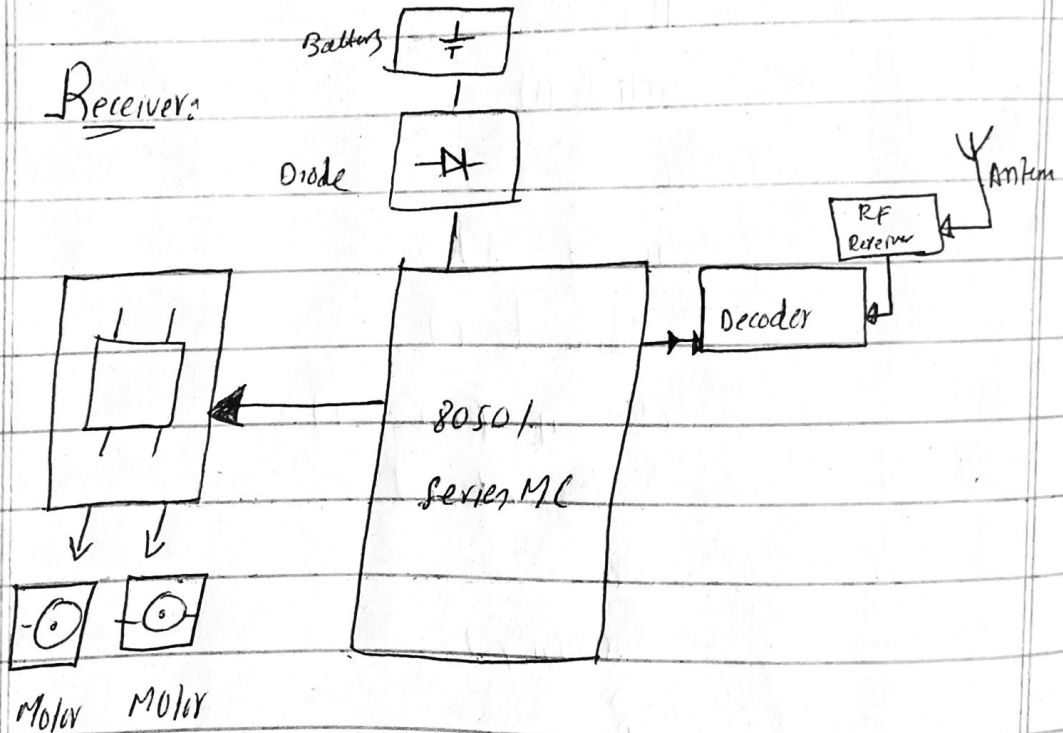 Battery
Receiver:
Diode
Antenn
RF
Receiver
Decoder
8050/.
Series MC
Motor
Motor